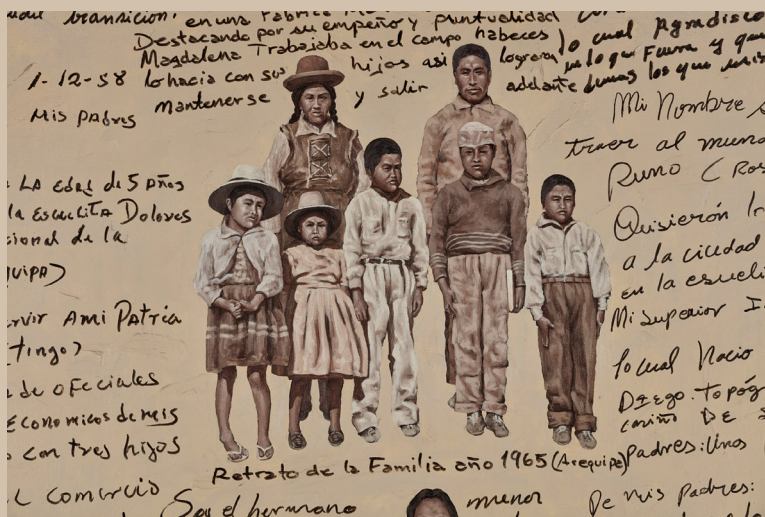 transición. en una Fabrica
Destacando por su empeño y puntualidad
Magdalena Trabajaba en el campo habeces
lo hacia con sus hijos asi lograron
mantenerse y salir adelante
lo cual Agradisco
en lo que Fuera y que
1-12-58
Mis padres
LA Edad de 5 Años
la Escuelita Dolores
cional de la
QUIPA)
ervir Ami Patria
(tingo)
de oFeciales
Economicos de mis
con tres hijos
EL comercio
Mi Nombre
traer al mundo
Runo (Ros
Quisierón
a la ciudad
en la escueli
Mi superior
lo cual Nacio
Diego. topóg
cariño DE
padres: Unos
De mis padres:
Retrato de la Familia año 1965 (Arequipa)
Soy el hermano menor